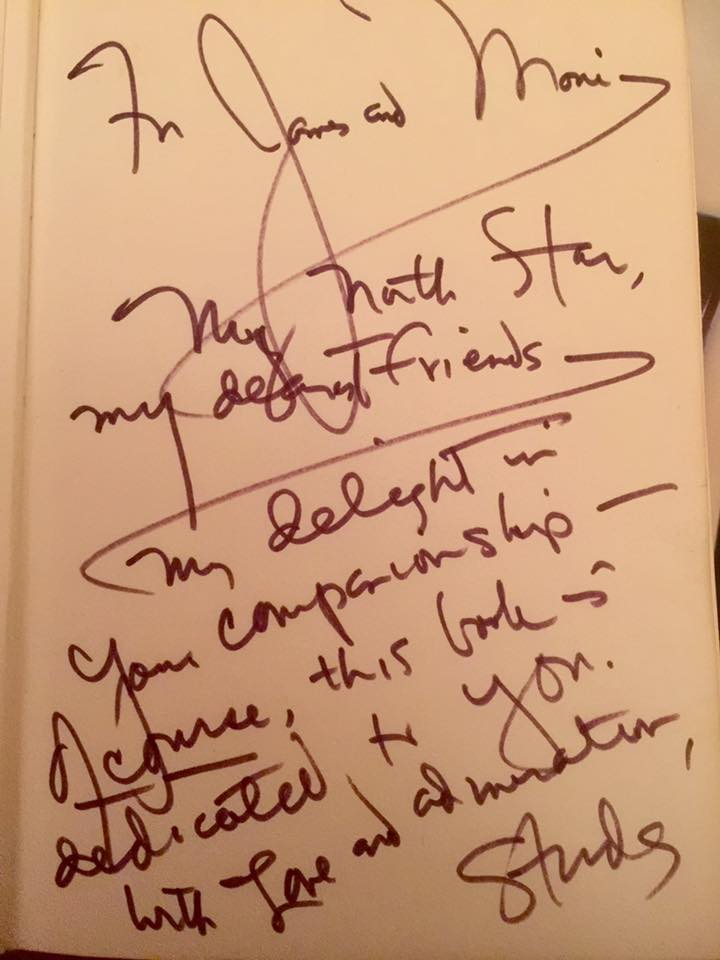 For James and Moni –
My North Star,
my dearest friends –
my delight in
your companionship –
Of course, this book is
dedicated to you.
With Love and admiration,
Studs